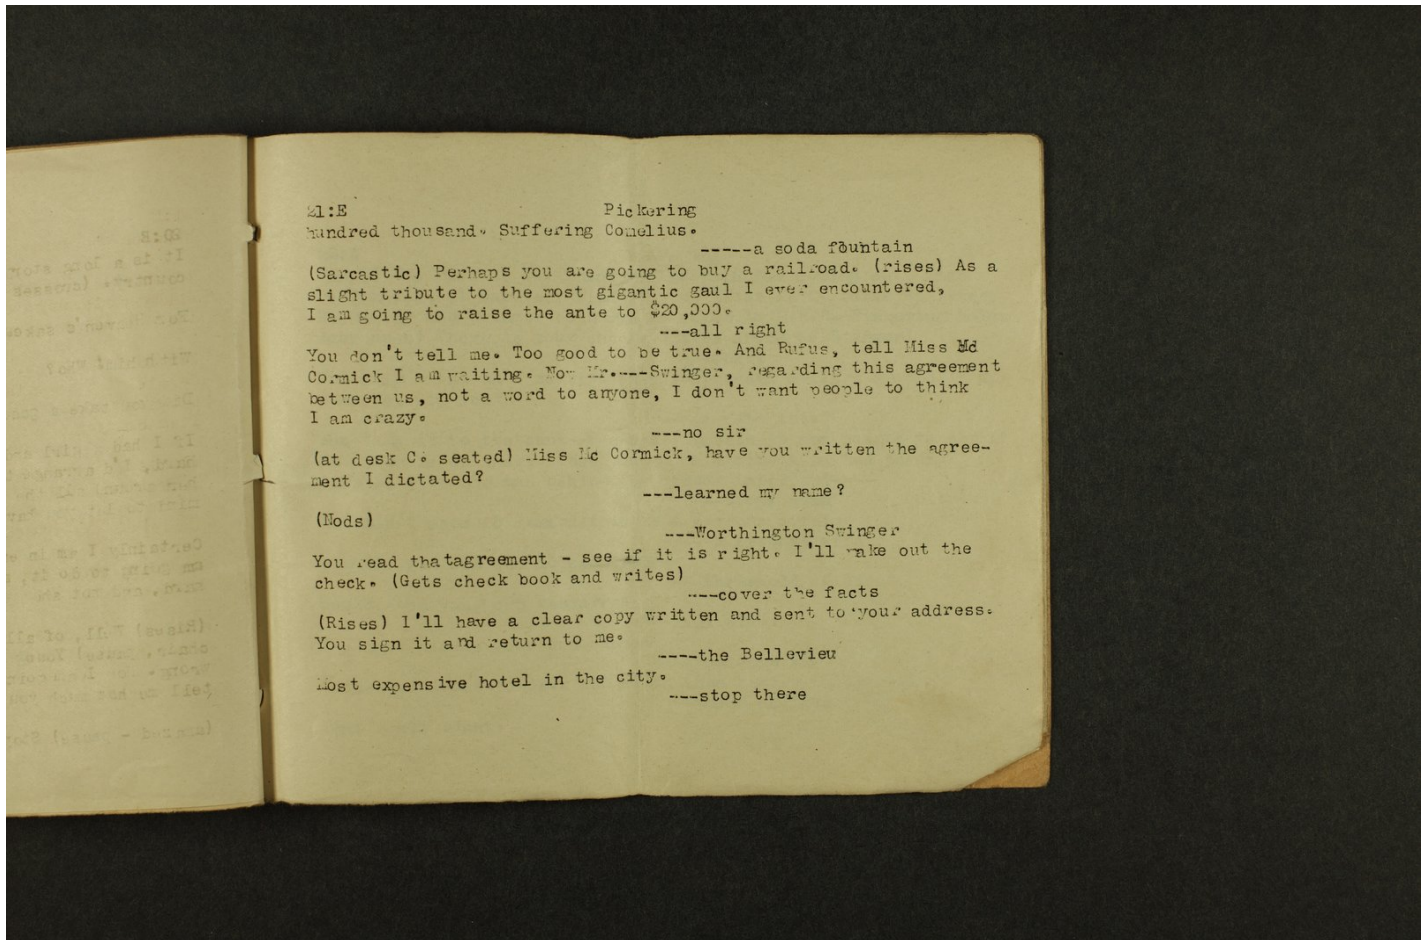 21:E Pickering
hundred thousand. Suffering Conelius.
-----a soda fountain
(Sarcastic) Perhaps you are going to buy a railroad. (rises) As a
slight tribute to the most gigantic gaul I ever encountered,
I am going to raise the ante to $20,000.
---all right
You don't tell me. Too good to be true. And Rufus, tell Miss Md
Cormick I am waiting. Now Mr.---Swinger, regarding this agreement
between us, not a word to anyone, I don't want people to think
I am crazy.
---no sir
(at desk C. seated) Miss Mc Cormick, have you written the agree-
ment I dictated?
---learned my name?
(Nods)
---Worthington Swinger
You read thatagreement - see if it is right. I'll make out the
check. (Gets check book and writes)
----cover the facts
(Rises) I'll have a clear copy written and sent to your address.
You sign it and return to me.
----the Bellevieu
Most expensive hotel in the city.
---stop there